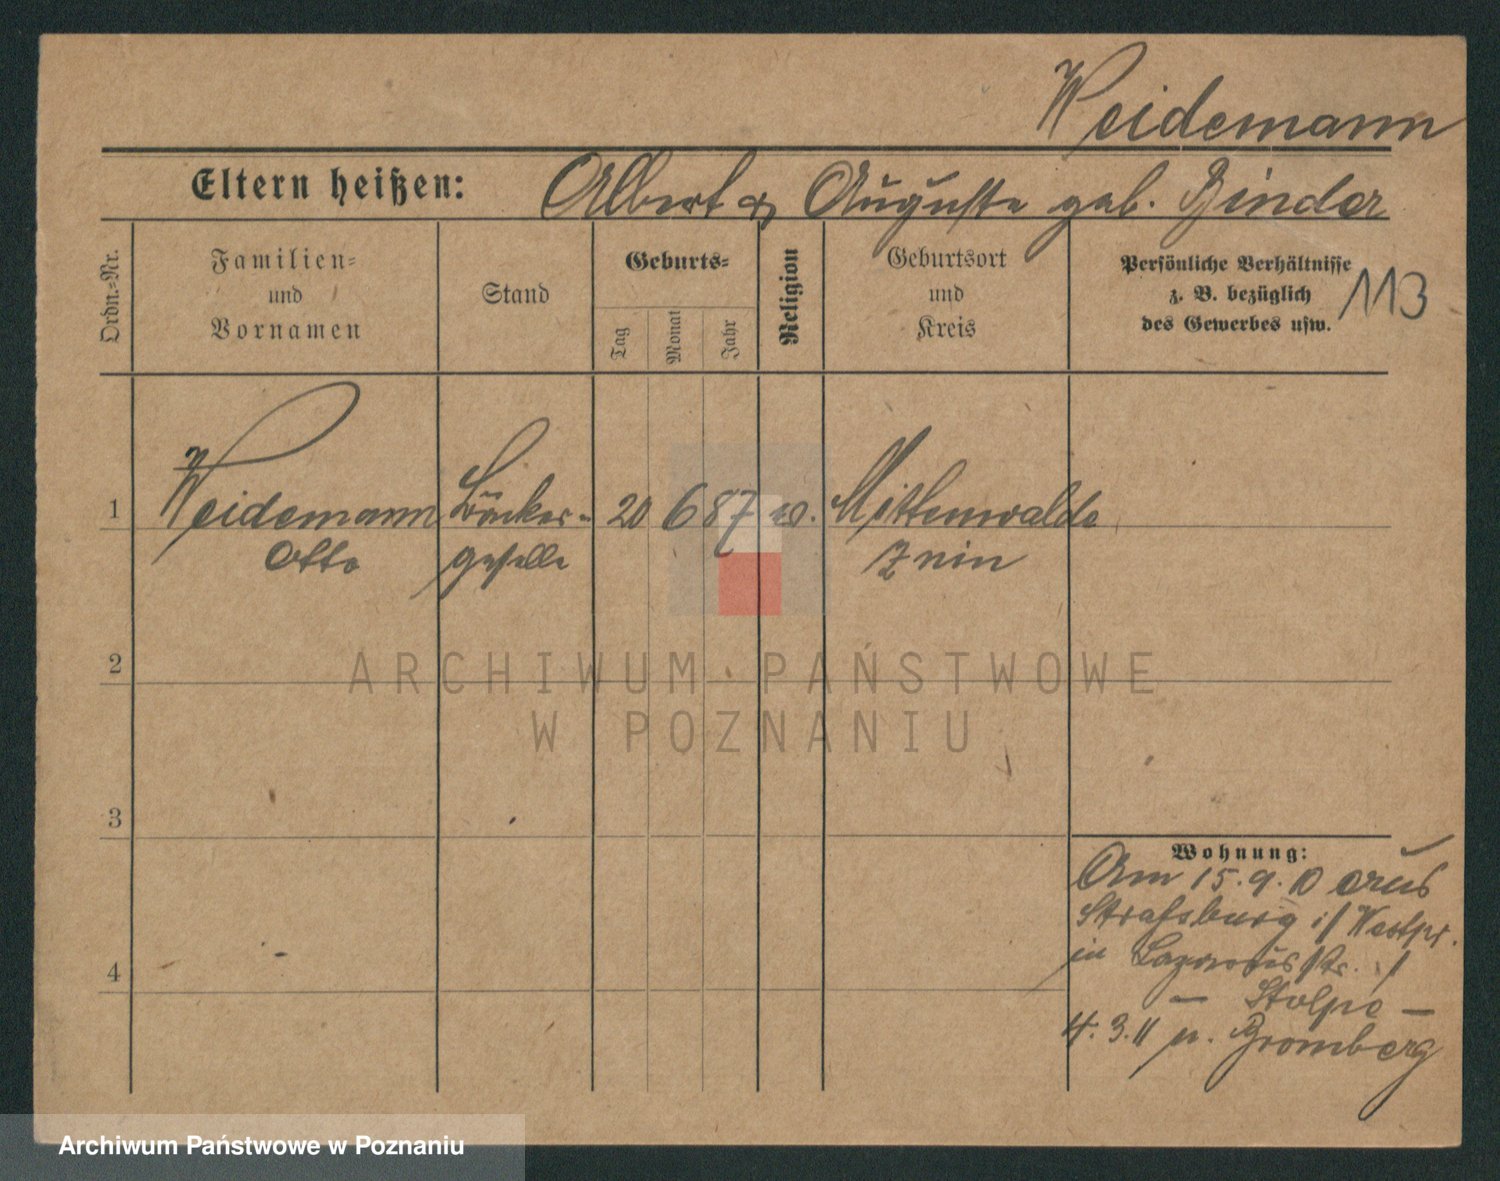 Weidemann
Eltern heißen: Albert & Auguste geb. Binder
Ordn.-Nr.
Familien-
und
Vornamen
Stand
Geburts-
Tag
Monat
Jahr
Religion
Geburtsort
und
Kreis
Persönliche Verhältnisse
z. B. bezüglich
des Gewerbes usw.
113
1 Weidemann Bäcker- 20 6 87 ev. Mittenwalde
Otto geselle Znin
2
ARCHIWUM PAŃSTWOWE
W POZNANIU
3
Wohnung:
Am 15.9.10 aus
Strassburg i/Westpr.
in Lazarusstr. 1
4
— Stolpe —
4.3.11 n. Bromberg
Archiwum Państwowe w Poznaniu